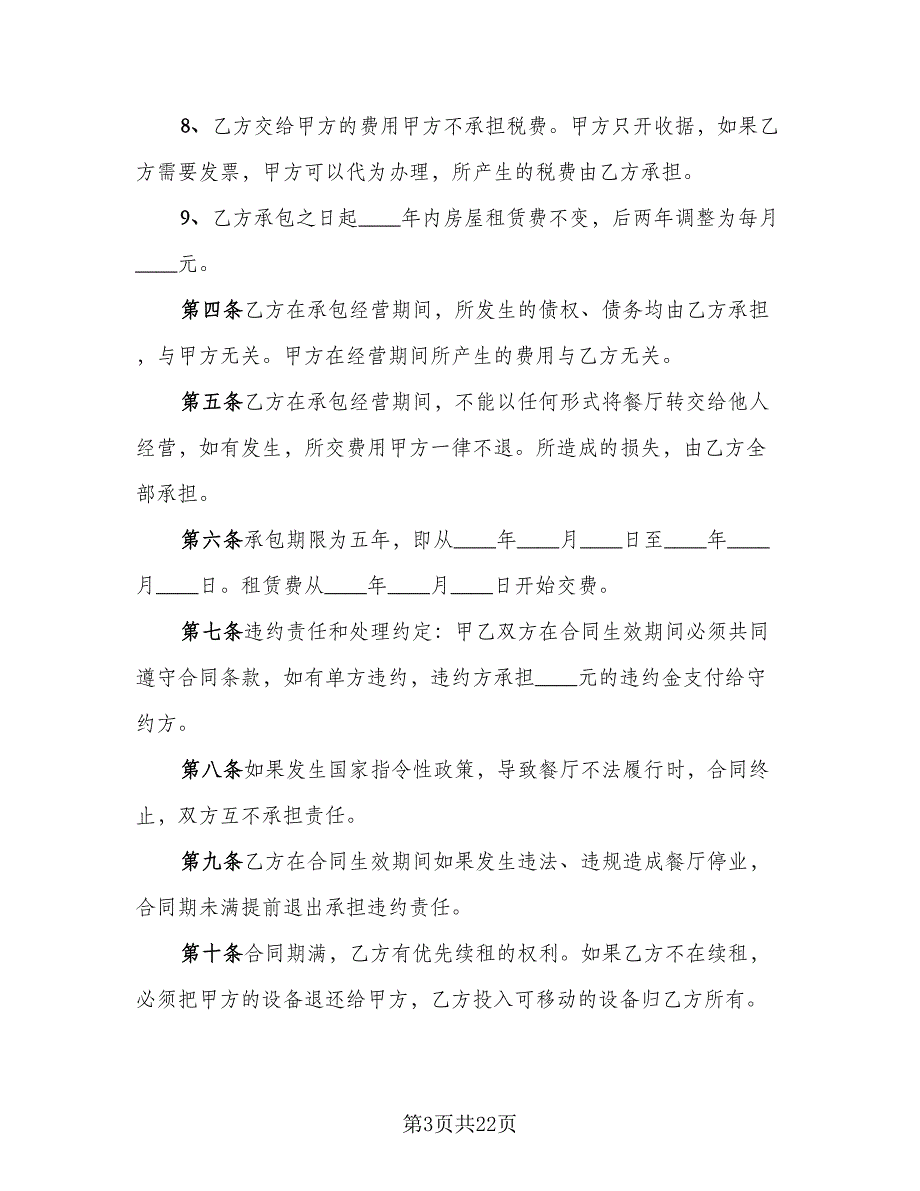 8、乙方交给甲方的费用甲方不承担税费。甲方只开收据，如果乙
方需要发票，甲方可以代为办理，所产生的税费由乙方承担。
9、乙方承包之日起____年内房屋租赁费不变，后两年调整为每月
____元。
第四条乙方在承包经营期间，所发生的债权、债务均由乙方承担
，与甲方无关。甲方在经营期间所产生的费用与乙方无关。
第五条乙方在承包经营期间，不能以任何形式将餐厅转交给他人
经营，如有发生，所交费用甲方一律不退。所造成的损失，由乙方全
部承担。
第六条承包期限为五年，即从____年____月____日至____年____
月____日。租赁费从____年____月____日开始交费。
第七条违约责任和处理约定：甲乙双方在合同生效期间必须共同
遵守合同条款，如有单方违约，违约方承担____元的违约金支付给守
约方。
第八条如果发生国家指令性政策，导致餐厅不法履行时，合同终
止，双方互不承担责任。
第九条乙方在合同生效期间如果发生违法、违规造成餐厅停业，
合同期未满提前退出承担违约责任。
第十条合同期满，乙方有优先续租的权利。如果乙方不在续租，
必须把甲方的设备退还给甲方，乙方投入可移动的设备归乙方所有。
第3页共22页